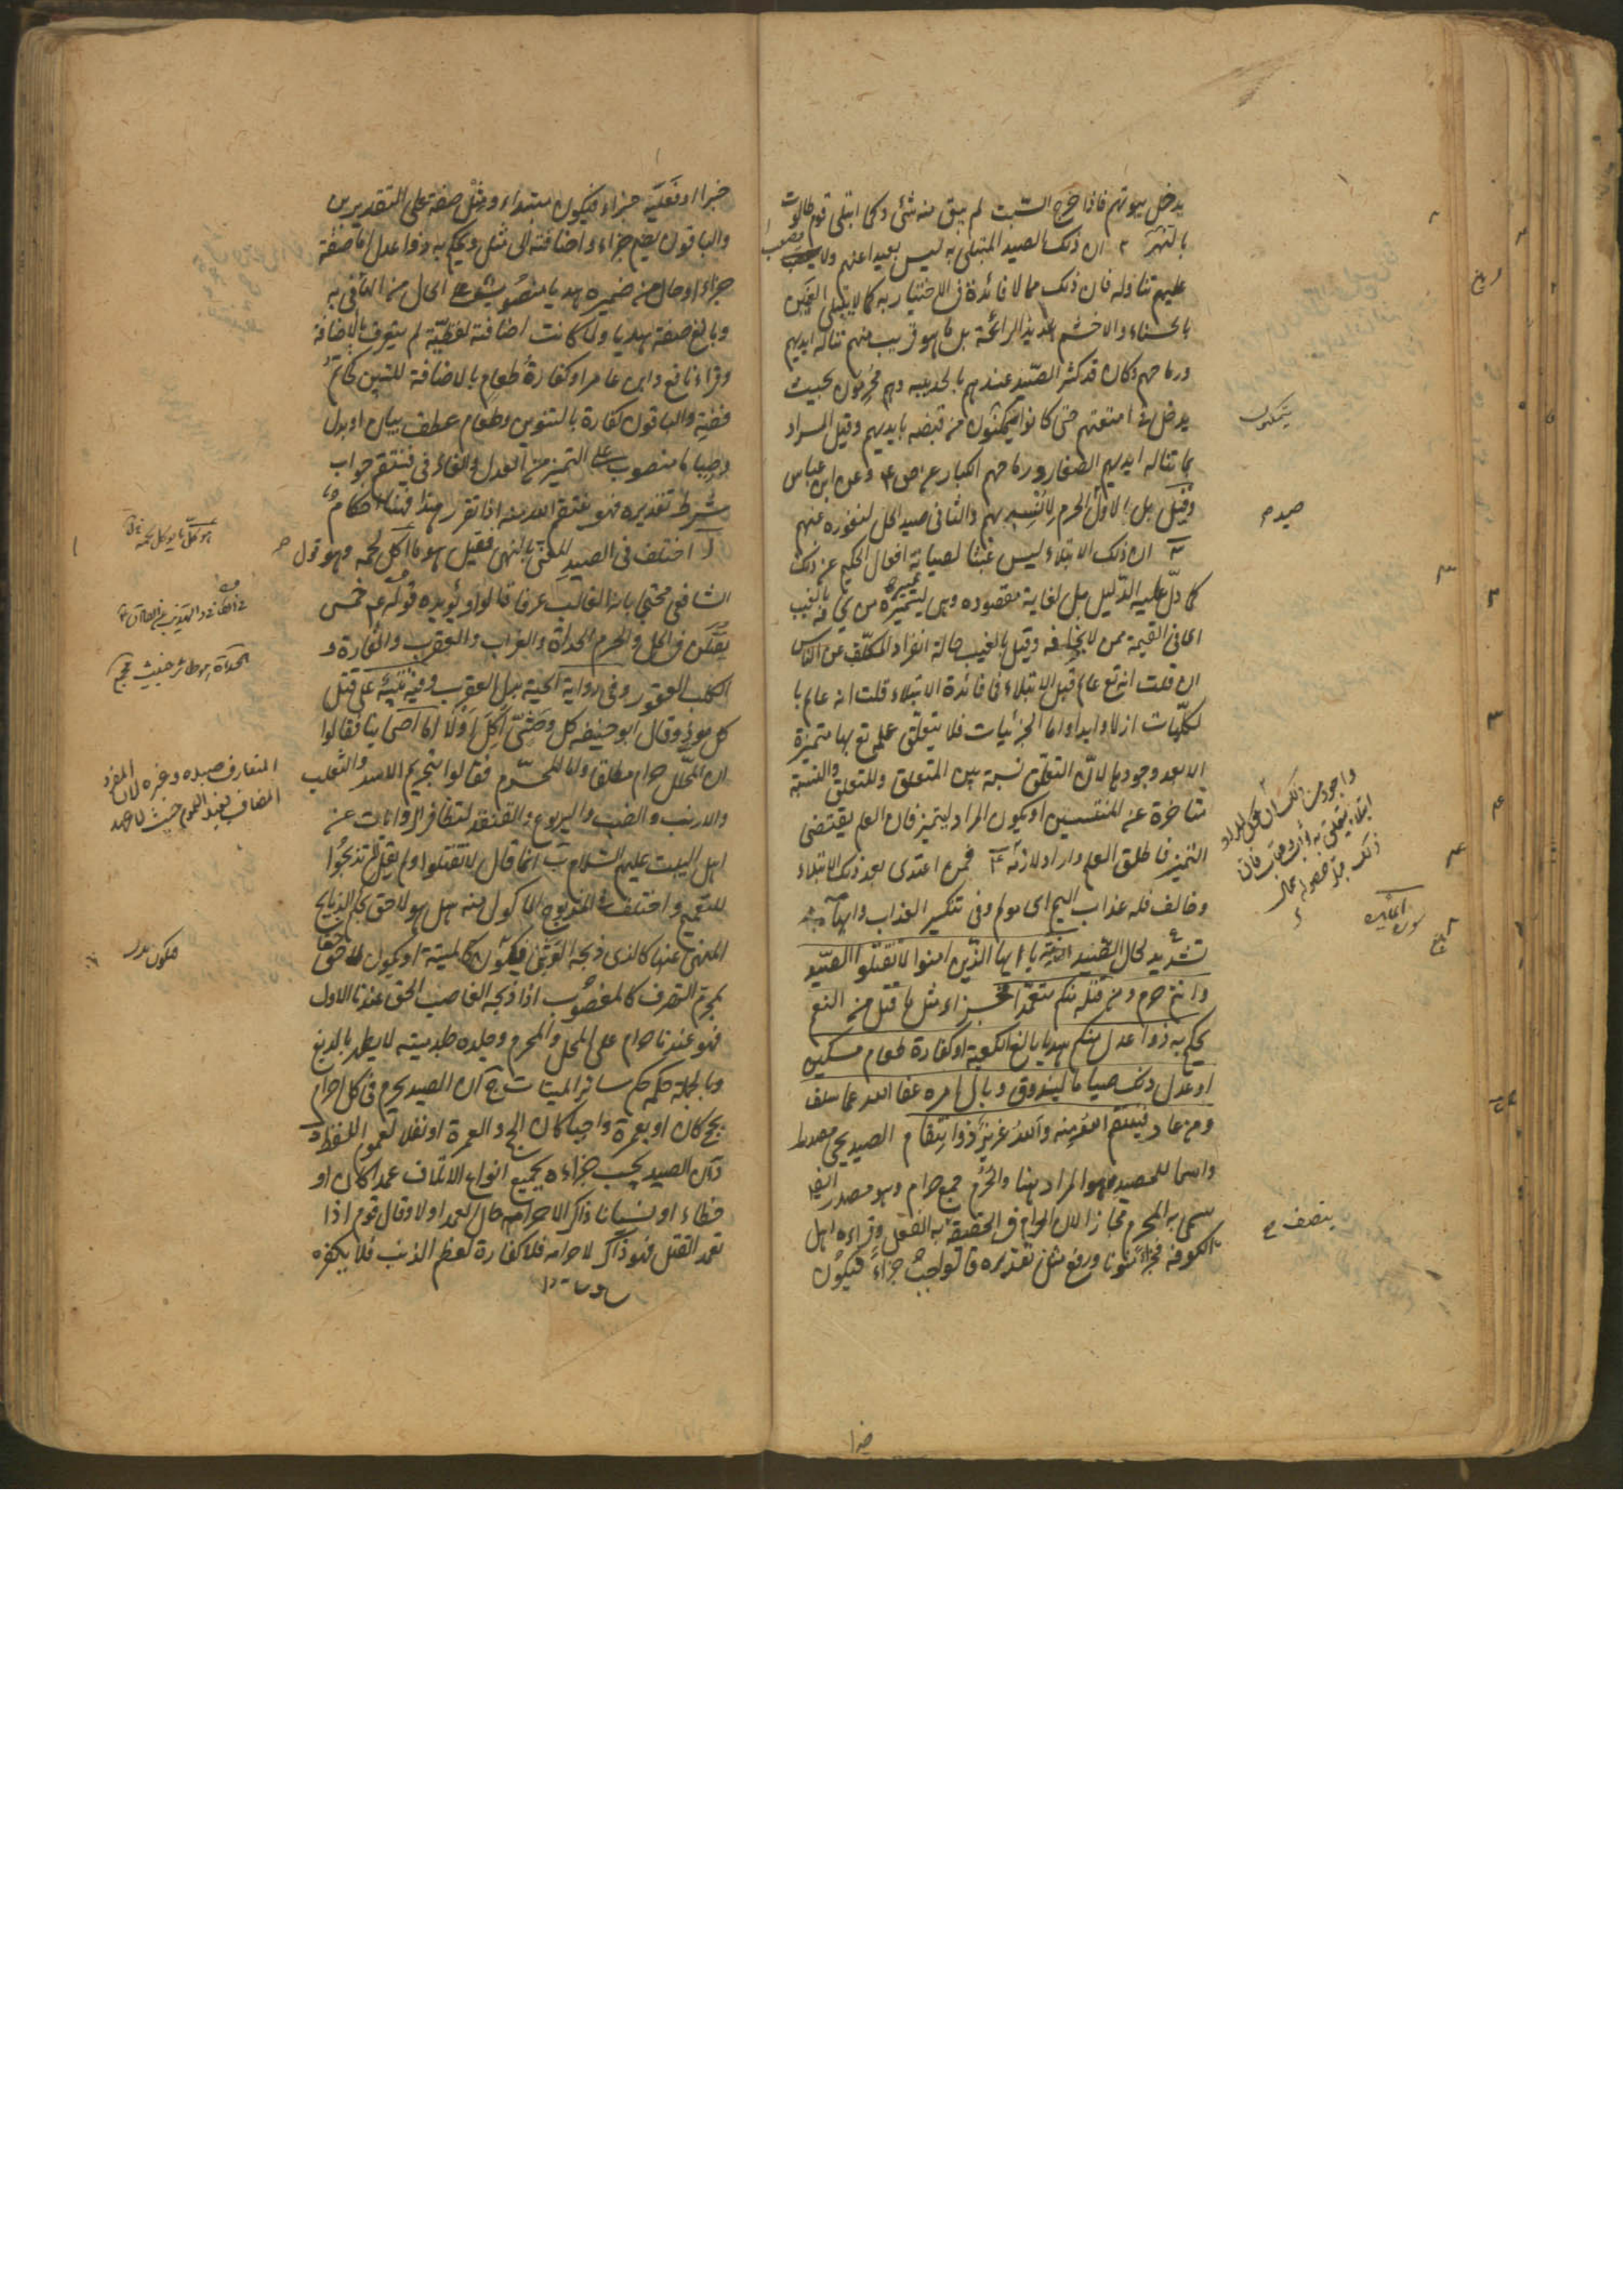 يدخل بيوتهم فاذا خرج السبت لم يبق منه شئ وكما ابتلى قوم طالوت
بالنهر ٢ ان ذلك الصيد المبتلى به ليس بعيدا عنهم ولا يصعب
عليهم تناوله فان ذلك مما لا فائدة في الاختبار به كما لا يبتلى العنين
بالحسناء والاخشم بلذيذ الرائحة بل ما هو قريب منهم تناله ايديهم
ورماحهم وكان قد كثر الصيد عندهم بالحديبيه وهم محرمون بحيث
يدخل في امتعتهم حتى كانوا يتمكنون من قبضه بايديهم وقيل المراد
بما تناله ايديهم الصغار ورماحهم الكبار عن ص ع وعن ابن عباس
وقيل بل الاول الحرم لأنسه بهم والثانى صيد الحل لنفوره عنهم
ان ذلك الابتلاء ليس عبثا لصيانة افعال الحكيم عن ذلك
كما دل عليه الدليل بل لغاية مقصوده وهى ليتميز من يخافه بالغيب
اى في القيمة ممن لا يخافه وقيل بالغيب حالة انفراد المكلف عن الناس
ان قلت انه تع عالم قبل الابتلاء فما فائدة الابتلاء قلت انه عالم با
لكليات ازلا وابدا واما الجزئيات فلا يتعلق علمه تع بها متميزة
الا بعد وجودها لان التعلق نسبة بين المتعلق والمتعلق والنسبة
متاخرة عنه للمنتسبين او يكون المراد ليتميز فان العلم يقتضى
التميز فاطلق العلم واراد لازمه ٤ فمن اعتدى بعد ذلك الابتلاء
وخالف فله عذاب اليم اى مولم وفي تنكير العذاب وابهامه
تشديد لحال الصيد يا ايها الذين امنوا لا تقتلوا الصيد
وانتم حرم ومن قتله منكم متعمدا فجزاء مثل ما قتل من النعم
يحكم به ذوا عدل منكم هديا بالغ الكعبة او كفارة طعام مسكين
او عدل ذلك صياما ليذوق وبال امره عفا الله عما سلف
ومن عاد فينتقم الله منه والله عزيز ذو انتقام الصيد يجئ مصدرا
واسما للمصيد وهو المراد هنا والحرم جمع حرام وهو مصدر ايضا
سمى به المحرم مجازا لان الحرام في الحقيقة به الفعل وقراءه اهل
الكوفه فجزاء منونا ورفع مثل تقديره فالواجب جزاء فيكون
يتمكنون
صيد م
سورة المائدة
خبرا او فعليه جزاء فيكون مبتداء ومثل صفة على التقديرين
والباقون بضم جزاء واضافته الى مثل ويحكم به ذوا عدل اما صفة
جزاء او حال من ضميره هديا منصوب على الحال من الهاء في به
وبالغ صفة هديا ولما كانت اضافته لفظية لم يتعرف بالاضافة
وقراء نافع وابن عامر او كفارة طعام بالاضافة للتبين كخاتم
فضة والباقون كفارة بالتنوين وطعام عطف بيان او بدل
وصياما منصوب على التميز من العدل والفاء في فينتقم جواب
شرط تقديره فهو ينتقم الله منه اذا تقرر هذا فهنا احكام
ا اختلف في الصيد المعنى بالنهى فقيل هو ما اكل لحمه وهو قول
الشافعي محتجا بانه الغالب عرفا قالوا ويؤيده قوله ع خمس
يقتلن في الحل والحرم الحداة والغراب والعقرب والفارة و
الكلب العقور وفي رواية الحية بدل العقرب وفيه تنبيه على قتل
كل موذ وقال ابو حنيفه كل وحشى اكل او لا اما اصحابنا فقالوا
ان المحلل حرام مطلقا واما المحرم فقالوا بتحريم الاسد والثعلب
والارنب والضب واليربوع والقنفذ لتظافر الروايات عن
اهل البيت عليهم السلام ب انما قال لا تقتلوا ولم يقل لا تذبحوا
للتعميم واختلف في المذبوح الماكول منه هل هو لاحق بالذبايح
المنهى عنها كالذى ذبحه الوثنى فيكون كالميتة او يكون لاحقا
بمحرم التصرف كالمغصوب اذا ذبحه الغاصب الحق عندنا الاول
فهو عندنا حرام على المحل والمحرم وجلده جلد ميته لا يطهر بالدبغ
وبالجملة حكمه حكم ساير الميتات ج ان الصيد يحرم في كل احرام
بحج كان او بعمرة واجبا كان الحج والعمرة او نفلا لعموم اللفظ
د ان الصيد يجب جزاءه بجميع انواع الاتلاف عمدا كان او
خطاء او نسيانا ذاكرا لاحرامه حال العمد او لا وقال قوم اذا
تعمد القتل فهو ذاكر لاحرامه فلا كفارة لعظم الذنب فلا يكفره